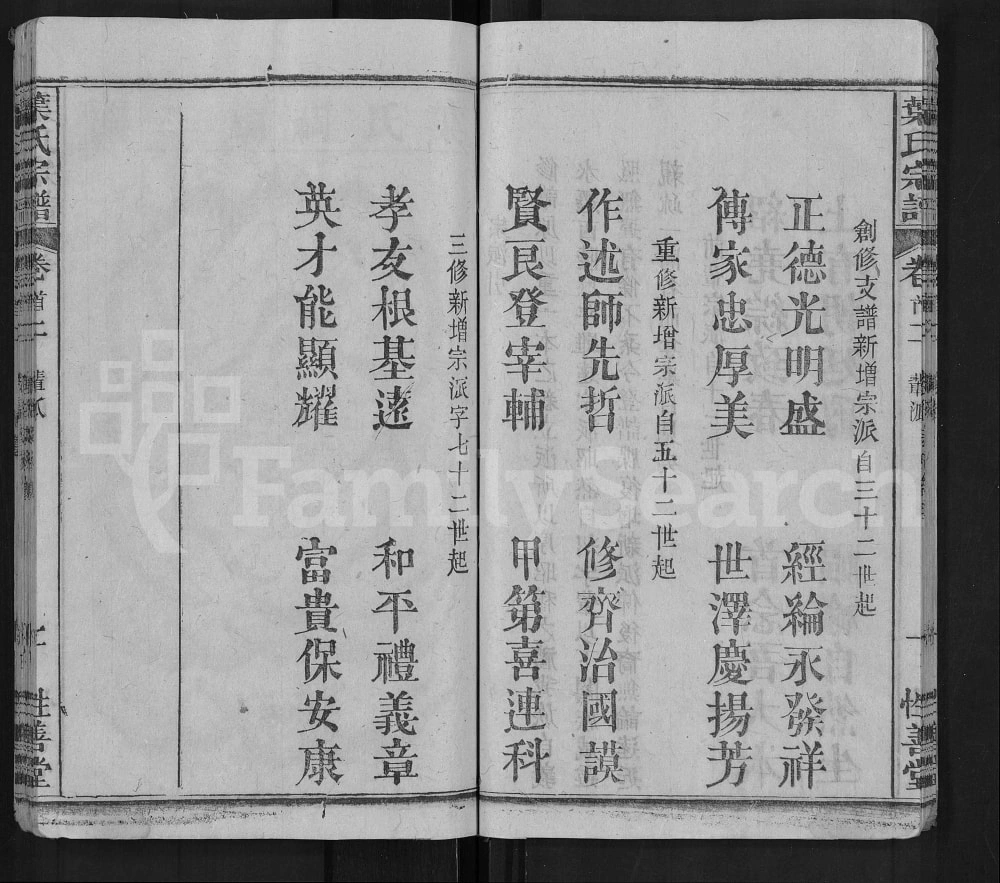 葉氏宗譜 卷首二
性善堂
創修支譜新增宗派自三十二世起
正德光明盛 經綸永發祥
傳家忠厚美 世澤慶揚芳
重修新增宗派自五十二世起
作述師先哲 修齊治國謨
賢良登宰輔 甲第喜連科
三修新增宗派字七十二世起
孝友根基遠 和平禮義章
英才能顯耀 富貴保安康
葉氏宗譜 卷首二
性善堂
FamilySearch